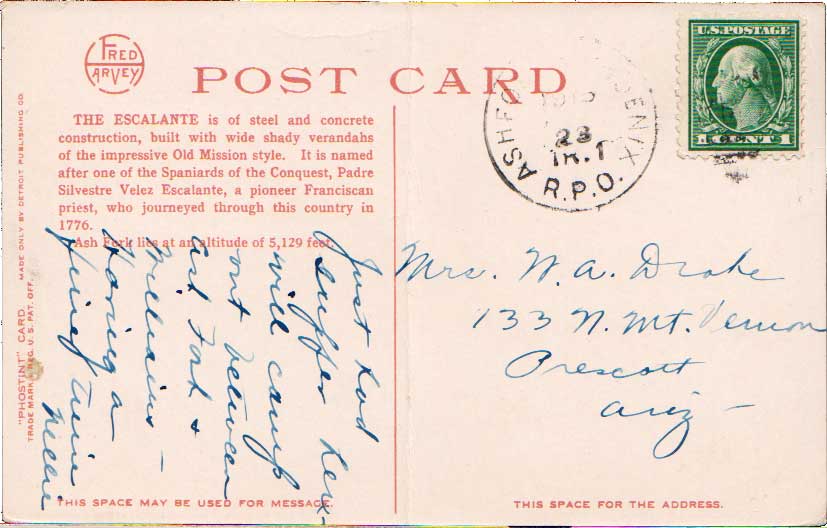 FRED
HARVEY
POST CARD
THE ESCALANTE is of steel and concrete
construction, built with wide shady verandahs
of the impressive Old Mission style. It is named
after one of the Spaniards of the Conquest, Padre
Silvestre Velez Escalante, a pioneer Franciscan
priest, who journeyed through this country in
1776.
Ash Fork lies at an altitude of 5,129 feet.
"PHOSTINT" CARD.
TRADE MARK REG. U.S. PAT. OFF.
MADE ONLY BY DETROIT PUBLISHING CO.
Just had
supper here -
will camp
out between
Ash Fork &
Williams -
Having a
fine time
Nellie
THIS SPACE MAY BE USED FOR MESSAGE.
23
TR. 1
R.P.O.
U.S. POSTAGE
1 CENT 1
Mrs. W. A. Drake
133 N. Mt. Vernon
Prescott
Ariz -
THIS SPACE FOR THE ADDRESS.